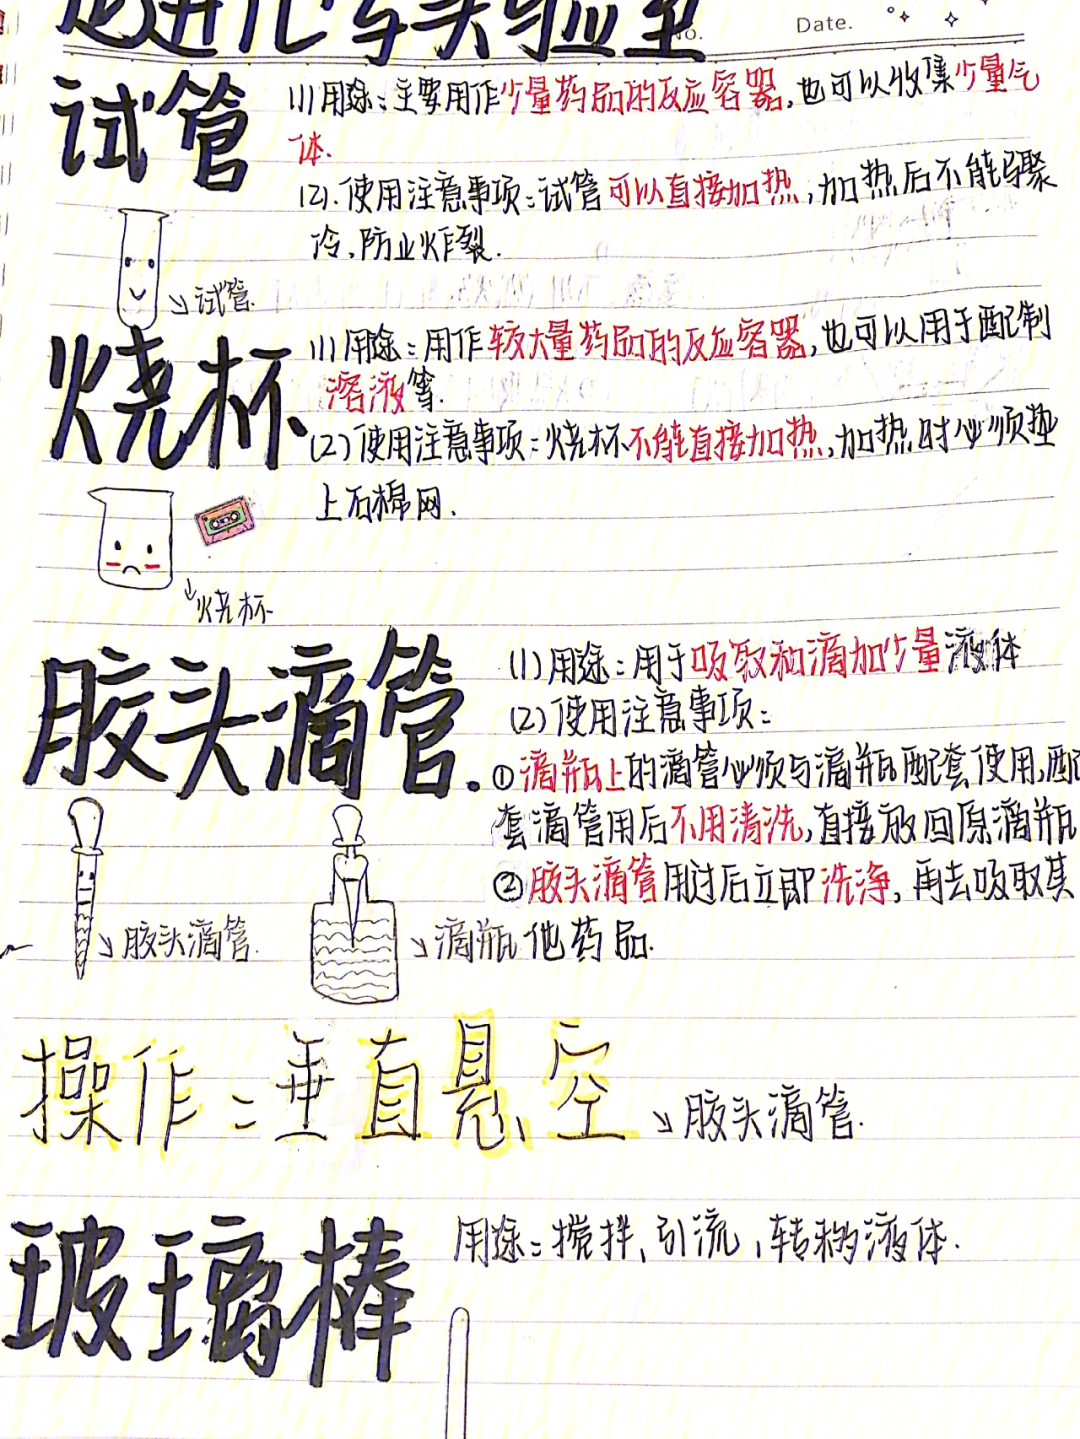 走进化学实验室
No.
Date.
试管
(1)用途:主要用作少量药品的反应容器,也可以收集少量气
体.
(2).使用注意事项:试管可以直接加热,加热后不能骤
冷,防止炸裂.
试管.
烧杯
(1)用途:用作较大量药品的反应容器,也可以用于配制
溶液等.
(2)使用注意事项:烧杯不能直接加热,加热时必须垫
上石棉网.
烧杯
胶头滴管.
(1)用途:用于吸取和滴加少量液体
(2)使用注意事项:
①滴瓶上的滴管必须与滴瓶配套使用,配
套滴管用后不用清洗,直接放回原滴瓶
②胶头滴管用过后立即洗净,再去吸取其
他药品.
胶头滴管.
滴瓶
操作:垂直悬空
胶头滴管.
玻璃棒
用途:搅拌、引流、转移液体.